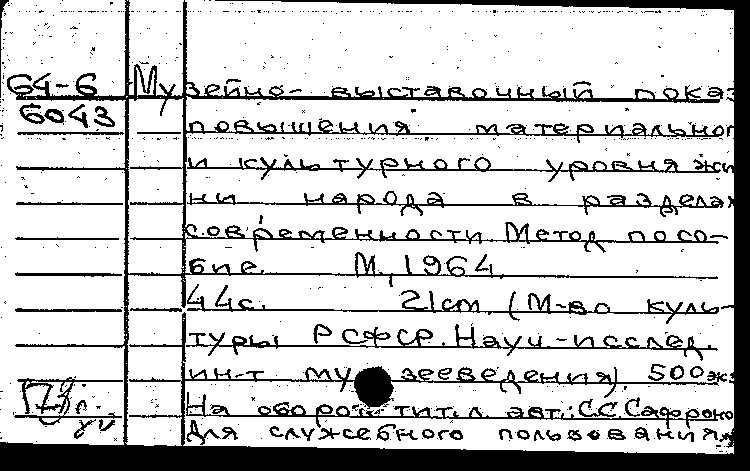 64-6 Музейно-выставочный показ
6043 повышения материально
и культурного уровня жи
ни народа в разделах
современности. Метод. посо-
бие. М., 1964.
44с. 21cm. (М-во куль-
туры РСФСР. Науч-исслед.
ин-т музееведения). 500 экз
На оборот тит. л. авт.: С.С. Сафроно
Для служебного пользования